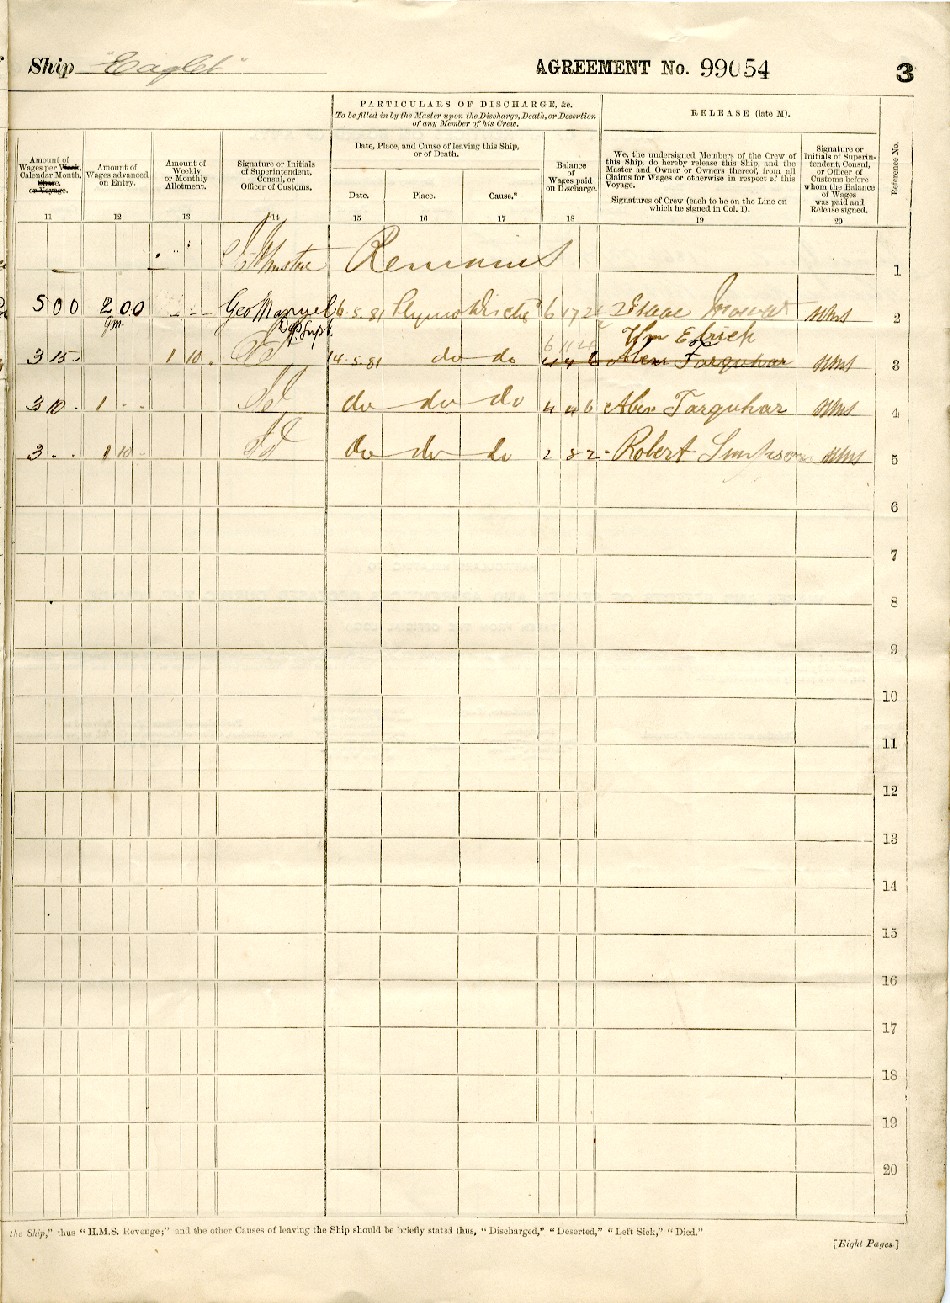 Ship "Eaglet" AGREEMENT No. 99054 3
PARTICULARS OF DISCHARGE, &c.
To be filled in by the Master upon the Discharge, Death, or Desertion
of any Member of his Crew.
RELEASE (late M).
Date, Place, and Cause of leaving this Ship,
or of Death.
Amount of
Wages per Week,
Calendar Month,
Share,
or Voyage.
Amount of
Wages advanced
on Entry.
Amount of
Weekly
or Monthly
Allotment.
Signature or Initials
of Superintendent,
Consul, or
Officer of Customs.
Date. Place. Cause.*
Balance
of
Wages paid
on Discharge.
We, the undersigned Members of the Crew of
this Ship, do hereby release this Ship, and the
Master and Owner or Owners thereof, from all
Claims for Wages or otherwise in respect of this
Voyage.
Signatures of Crew (each to be on the Line on
which he signed in Col. 1).
Signature or
Initials of Superin-
tendent, Consul,
or Officer of
Customs before
whom the Balance
of Wages
was paid and
Release signed.
Reference No.
11 12 13 14 15 16 17 18 19 20
Remains 1
5 0 0 2 0 0 Geo Manuel 16.5.81 Plymo Disch 6 17 2 Isaac Mowat 2
Wm Elrick
3 15 - 1 10 - 14.5.81 do do Alex Farquhar 3
3 10 - 1 - - do do do 4 4 6 Alex Farquhar 4
3 - - 1 10 - do do do 2 8 2 Robert Simpson 5
6
7
8
9
10
11
12
13
14
15
16
17
18
19
20
the Ship," thus "H.M.S. Revenge;" and the other Causes of leaving the Ship should be briefly stated thus, "Discharged," "Deserted," "Left Sick," "Died."
[Eight Pages]